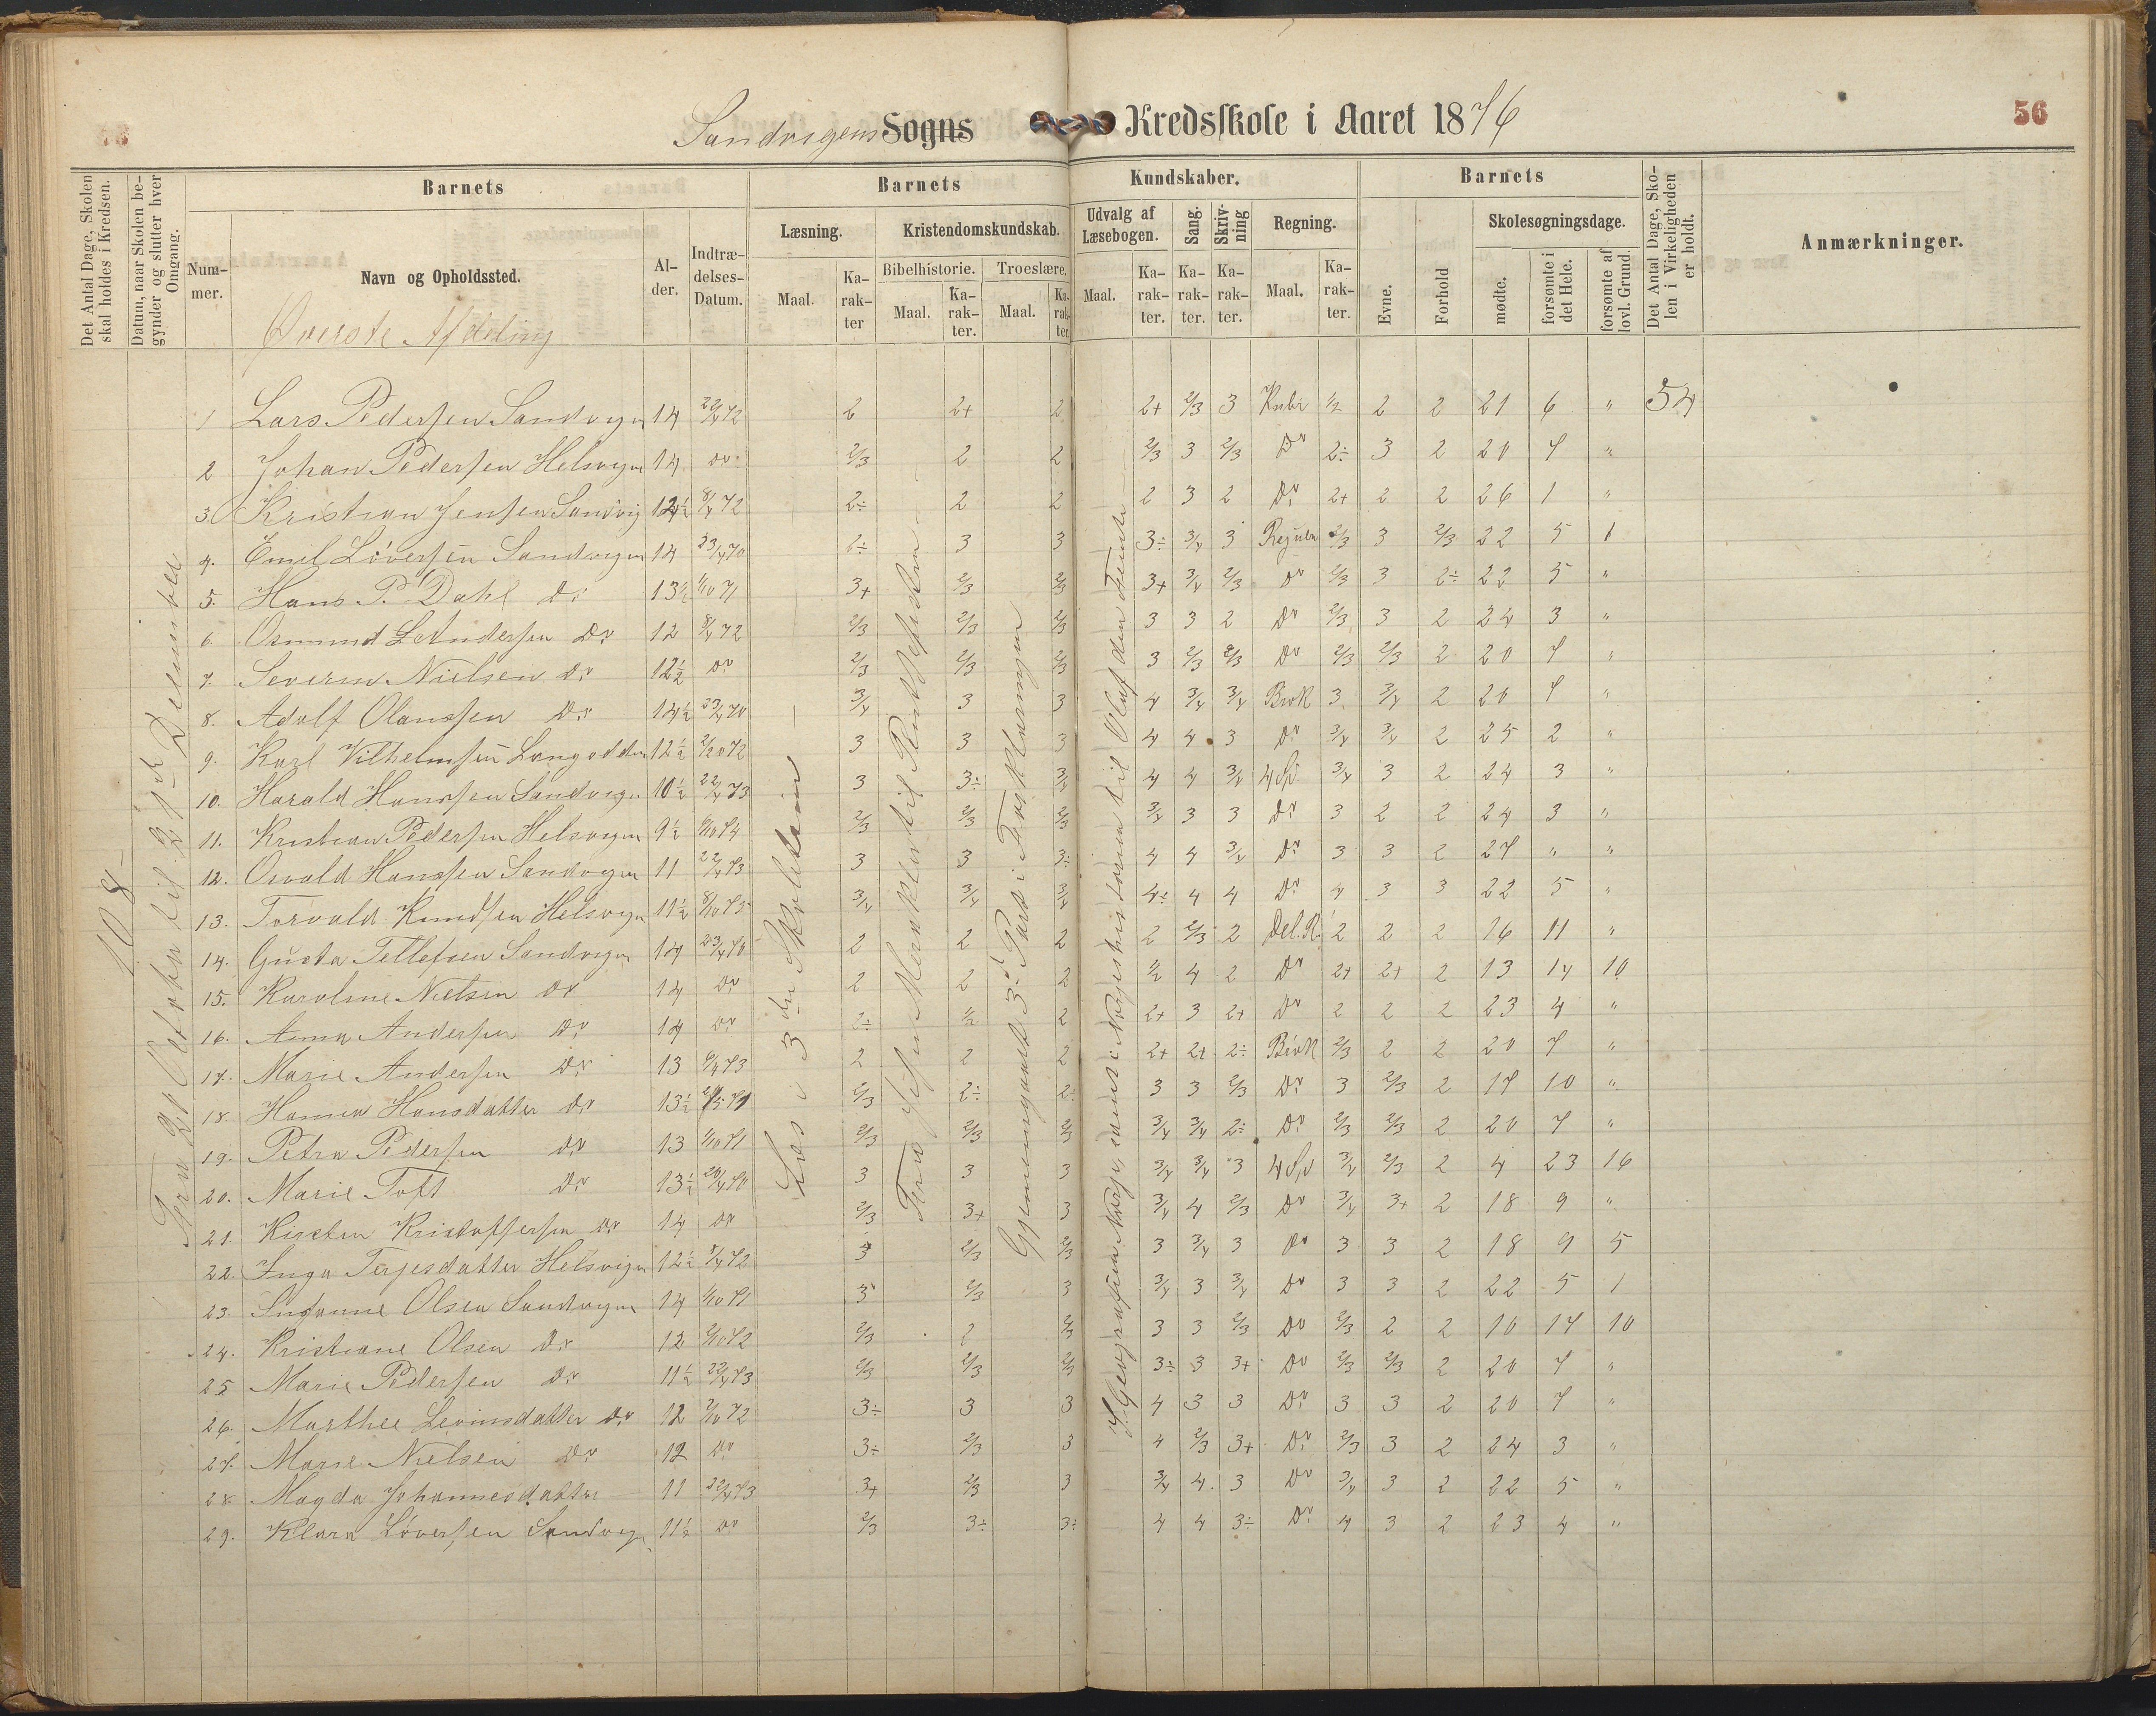 Sandvigens Sogns Kredsskole i Aaret 1876
56
Det Antal Dage, Skolen skal holdes i Kredsen.
Datum, naar Skolen begynder og slutter hver Omgang.
Barnets
Nummer.
Navn og Opholdssted.
Alder.
Indtrædelses-Datum.
Barnets Kundskaber.
Læsning.
Maal.
Karakter
Kristendomskundskab.
Bibelhistorie.
Maal.
Karakter.
Troeslære.
Maal.
Karakter.
Udvalg af Læsebogen.
Maal.
Karakter.
Sang.
Karakter.
Skrivning
Karakter.
Regning.
Maal.
Karakter.
Barnets
Evne.
Forhold
Skolesøgningsdage.
mødte.
forsømte i det Hele.
forsømte af lovl. Grund.
Det Antal Dage, Skolen i Virkeligheden er holdt.
Anmærkninger.
Øverste Afdeling
108
Læs i 3die Skoletrin
1 Lars Pedersen Sandvigen 14 2 2+ 2 2+ 2/3 3 Kubi 1/2 2 2 21 6 " 54
2 Johan Pedersen Helsvigen 14 do 2/3 2 2 2/3 3 2/3 Do 2÷ 3 2 20 7 "
3. Kristian Jensen Sandvig 12½ 8/4 72 2÷ 2 2 2 3 2 Do 2+ 2 2 26 1 "
4. Emil Løversen Sandvigen 14 23/4 70 2÷ 3 3 3÷ 3/4 3 2/3 3 2/3 22 5 1
5. Hans P. Dahl Do 13½ 1/10 71 3+ 2/3 2/3 3+ 3/4 2/3 Do 2/3 3 2÷ 22 5 "
6. Osmund L Andersen Do 12 8/4 72 2/3 2/3 2/3 3 3 2 Do 2/3 3 2 24 3 "
7. Severin Nielsen Do 12½ Do 2/3 2/3 2/3 3 2/3 2/3 Do 2/3 2/3 2 20 7 "
8. Adolf Olanssen Do 14½ 23/4 70 3/4 3 3 4 3/4 3/4 Brøk 3 3/4 2 20 7 "
9. Karl Vilhelmsen Langodden 12½ 3 3 3 4 4 3 Do 3/4 3/4 2 25 2 "
10. Harald Hanssen Sandvigen 10½ 22/4 73 3 3÷ 3/4 4 4 3/4 4 Sp 3/4 3 2 24 3 "
11. Kristian Pedersen Helsvigen 9½ 2/3 2/3 2/3 3/4 3 3 Do 3 2 2 24 3 "
12. Osvald Hanssen Sandvigen 11 22/4 73 3 3 3÷ 4 4 3/4 Do 3 3 2 27 " "
13. Torvald Knudsen Helsvigen 11½ 3/4 3/4 3/4 4÷ 4 4 Do 4 3 3 22 5 "
14. Gusta Tellefsen Sandvigen 14 23/4 70 2 2 2 2 2/3 2 Del. R. 2 2 2 16 11 "
15. Karoline Nielsen Do 14 Do 2 2 2 1/2 4 2 Do 2+ 2+ 2 13 14 10
16. Anna Andersen Do 14 Do 2÷ 1/2 2 2+ 3 2+ Do 2 2 2 23 4 "
17. Marie Andersen Do 13 2 2 2 2+ 2+ 2÷ Brøk 2/3 2 2 20 7 "
18. Hanna Hansdatter Do 13½ 2/3 2÷ 2÷ 3 3 2/3 Do 3 2/3 2 17 10 "
19. Petra Pedersen Do 13 1/10 71 2/3 2/3 2/3 3/4 3/4 2÷ Do 2/3 2/3 2 20 7 "
20. Marie Toft Do 13½ 3 3 3 3/4 3/4 3 4 Sp 3/4 2/3 2 4 23 16
21. Kirsten Kristoffersen Do 14 Do 2/3 3+ 3 3/4 4 2/3 Do 3/4 3+ 2 18 9 "
22. Inga Terjesdatter Helsvigen 12½ 3 2/3 2/3 3 3/4 3 Do 3 3 2 18 9 5
23. Susanne Olsen Sandvigen 14 1/10 71 3 2/3 3 3/4 3 3/4 Do 3 3 2 22 5 1
24. Kristiane Olsen Do 12 2/3 2 2/3 3 3 2/3 Do 2/3 2 2 10 17 10
25 Marie Pedersen Do 11½ 22/4 73 2/3 2/3 2/3 3÷ 3 3+ Do 2/3 2/3 2 20 7 "
26. Marthee Levinsdatter Do 12 3÷ 3 3 4 3 3 Do 3 3 2 20 7 "
27. Marie Nielsen Do 12 Do 3÷ 2/3 3 4 2/3 3+ Do 2/3 3 2 24 3 "
28 Magda Johannesdatter 11 22/4 73 3+ 2/3 3 3/4 4 3 Do 3/4 3 2 22 5 "
29. Klara Løversen Sandvigen 11½ Do 2/3 3÷ 3÷ 4 4 3÷ Do 4 3 2 23 4 "